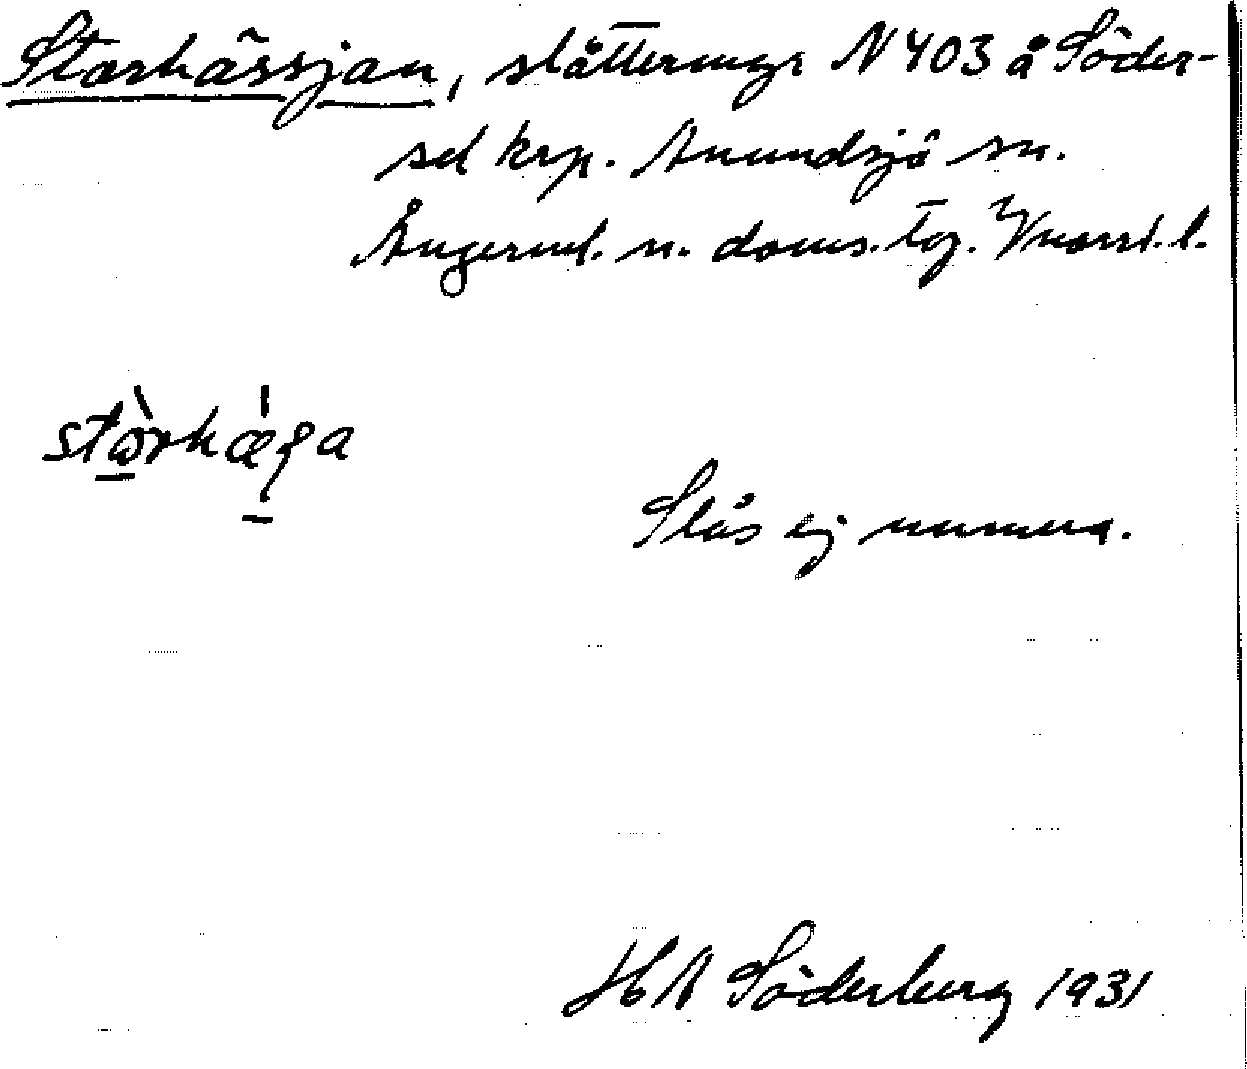 Storhässjan, slåttermyr N 403 å Söder-
sel krp. Anundsjö sn.
Ångerml. n. doms. tg. Vnorrl. l.
stòrhæ̀ʂa
Slås ej numera.
H A Söderberg 1931